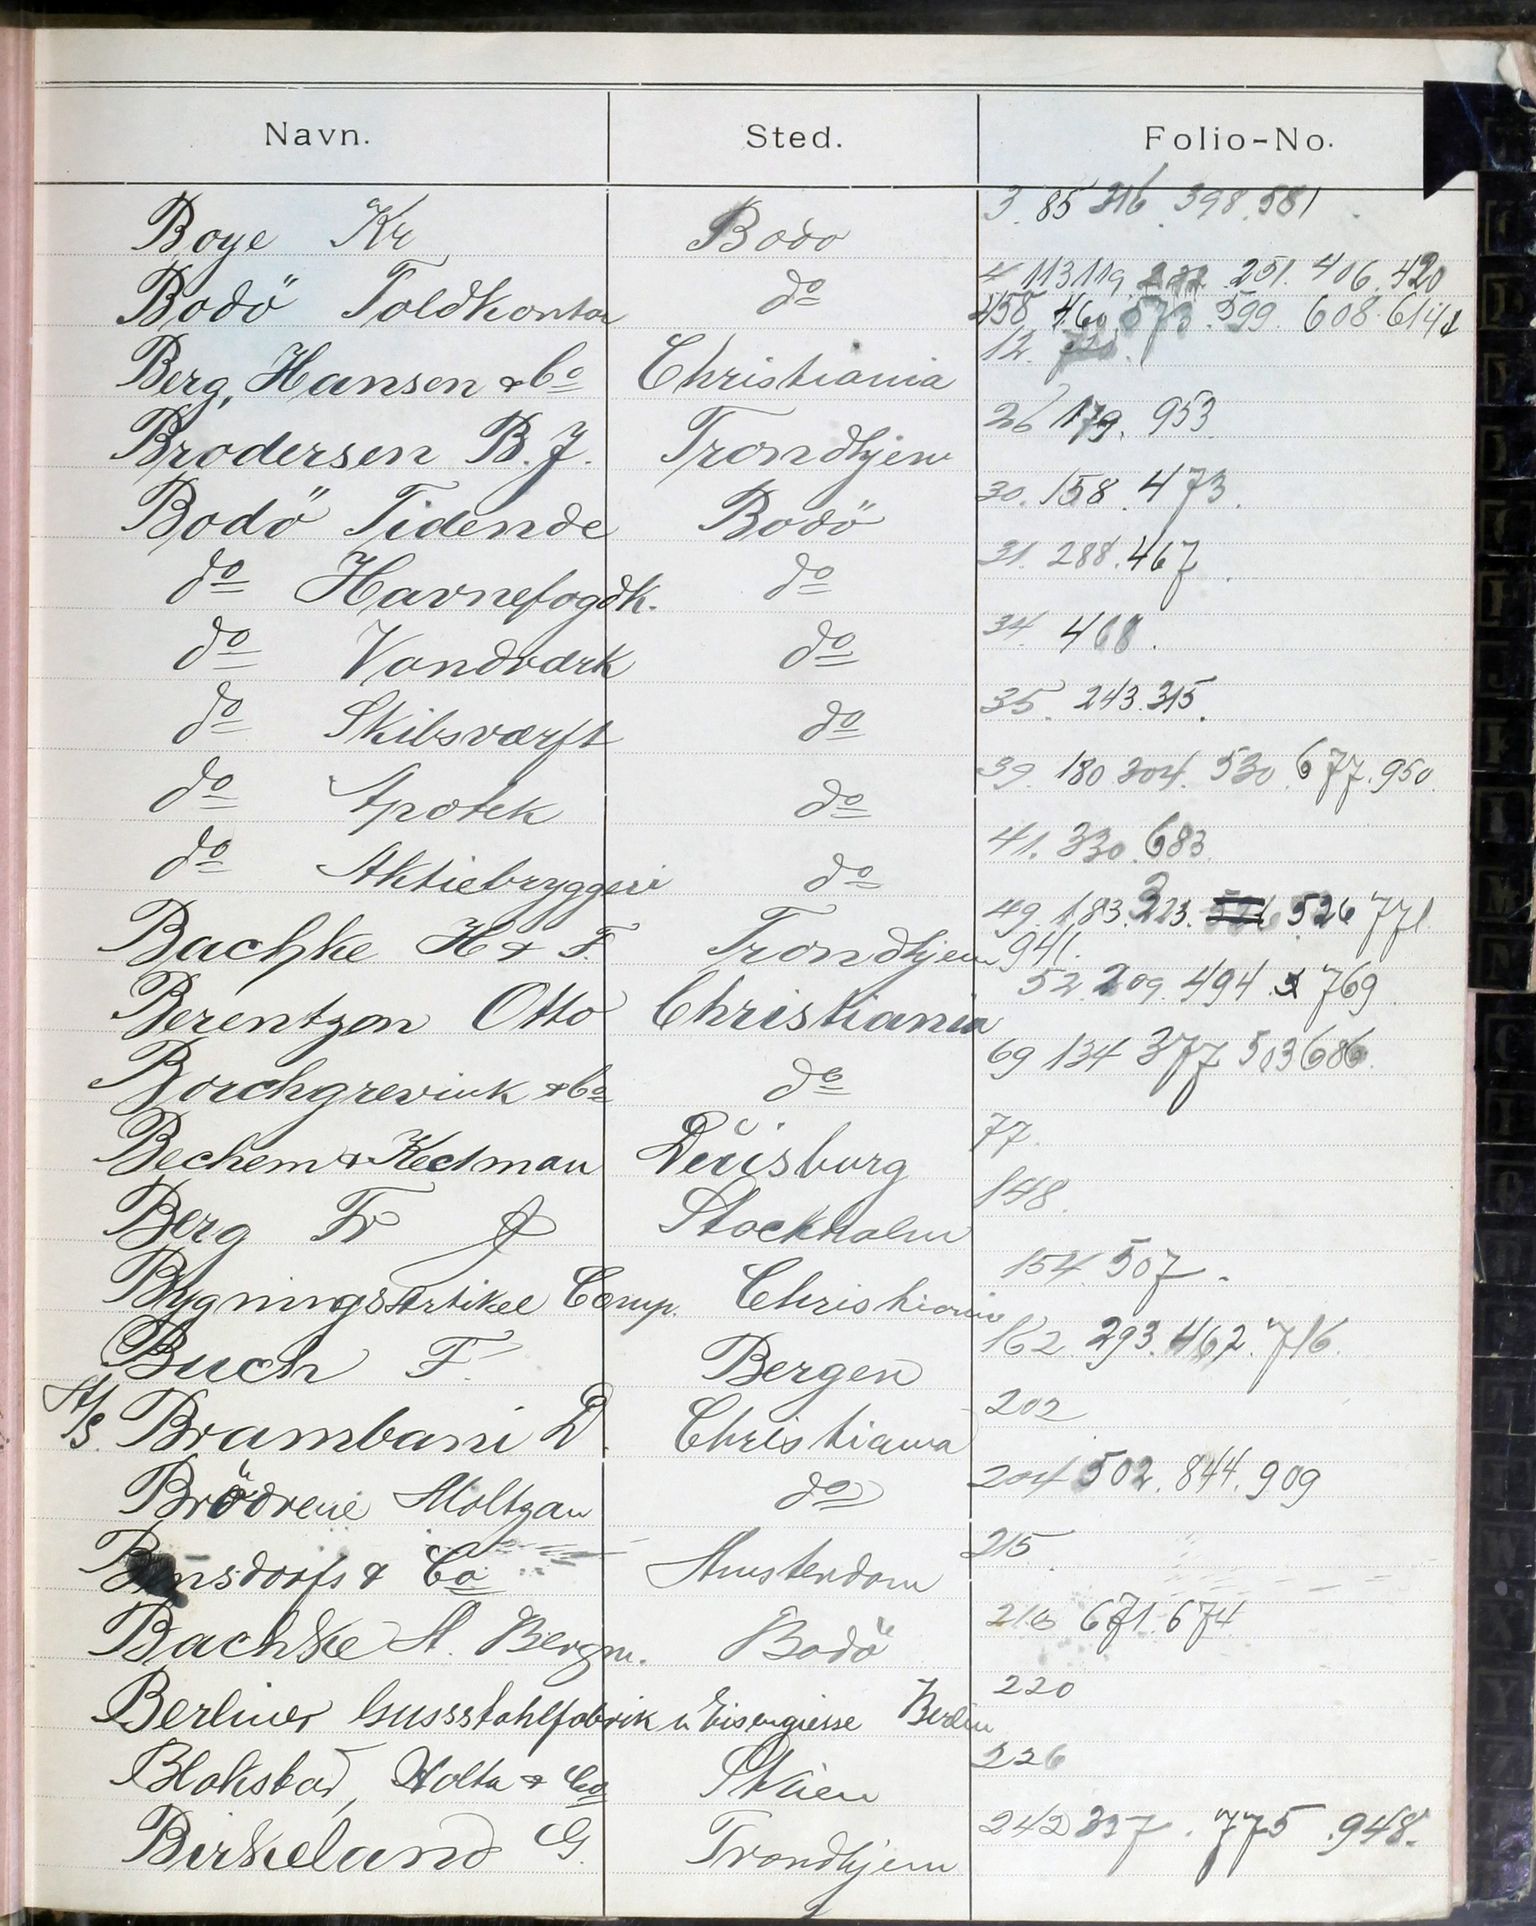 Navn. Sted. Folio-No.
Boye Kr Bodo 3. 85 316. 398. 581
Bodö Toldkontor do 4 113 119 251. 406. 420
458 460 573. 599. 608. 614
Berg, Hansen & Co Christiania 12.
Brodersen B. J. Trondhjem 26 179. 953
Bodö Tidende Bodö 30. 158. 473.
do Havnefogdk. do 31. 288. 467.
do Vandværk do 34. 468.
do Skibsværft do 35. 243. 315.
do Apotek do 39. 180 304. 530. 677. 950.
do Aktiebryggeri do 41. 330. 683
Bachke H & F. Trondhjem 49. 183. 323. 526 771
941.
Berentzen Otto Christiania 52 209. 494. 769
Borchgrevink & Co do 69 134 377 503 686.
Bechem & Keetman Düisburg 77.
Berg Fr Stockholm 148.
BygningsArtikel Comp. Christiania 154. 507.
Buch F. Bergen 162. 293. 462. 716.
A/S. Brambani D. Christiania 202
Brödrene Moltzau do 204 502. 844. 909
& Co Amsterdam 215
Bachke A. Bergm. Bodö 216 671. 674
Berliner Gussstahlfabrik u Eisengiesse Berlin 220
Blakstad, Holta & Co Skien 226
Birkeland G. Trondhjem 242 337. 775. 948.